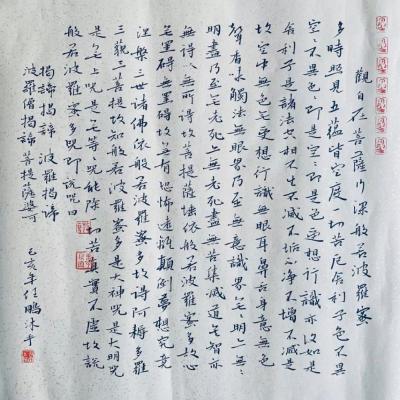 觀自在菩薩行深般若波羅蜜
多時照見五蘊皆空度一切苦厄舍利子色不異
空〻不異色〻即是空〻即是色受想行識亦復如是
舍利子是諸法空相不生不滅不垢不淨不增不減是
故空中無色無受想行識無眼耳鼻舌身意無色
聲香味觸法無眼界乃至無意識界無〻明亦無〻
明盡乃至無老死亦無老死盡無苦集滅道無智亦
無得以無所得故菩提薩埵依般若波羅蜜多故心
無罣礙無罣礙故無有恐怖遠離顛倒夢想究竟
涅槃三世諸佛依般若波羅蜜多故得阿耨多羅
三藐三菩提故知般若波羅蜜多是大神咒是大明咒
是無上咒是無等〻咒能除一切苦真實不虛故說
般若波羅蜜多咒即說咒曰
揭諦揭諦 波羅揭諦
波羅僧揭諦 菩提薩婆訶
己亥年任鵬沐手